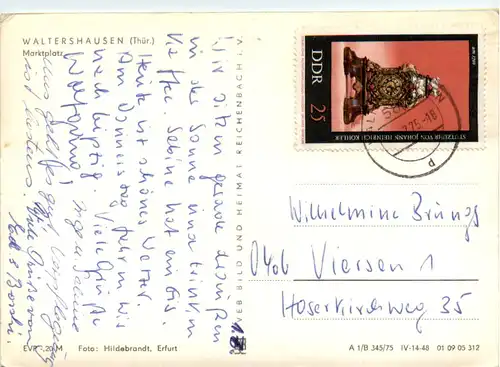 WALTERSHAUSEN (Thür.)
Marktplatz
Wir sitzen gerade draußen
in der Sonne und trinken
Kaffee. Sabine hat ein Eis.
Heute ist schönes Wetter.
Am Donnerstag fahren wir
nach Leipzig. Viele Grüße
Uns geht es gut
Viele Grüße von
VEB BILD UND HEIMAT REICHENBACH i. V.
DDR
25
STUTZUHR VON JOHANN HEINRICH KÖHLER
Wilhelmine Brüngs
0406 Viersen 1
Hoserkirchweg 35
EVP 0,20 M Foto: Hildebrandt, Erfurt
A 1/B 345/75 IV-14-48 01 09 05 312